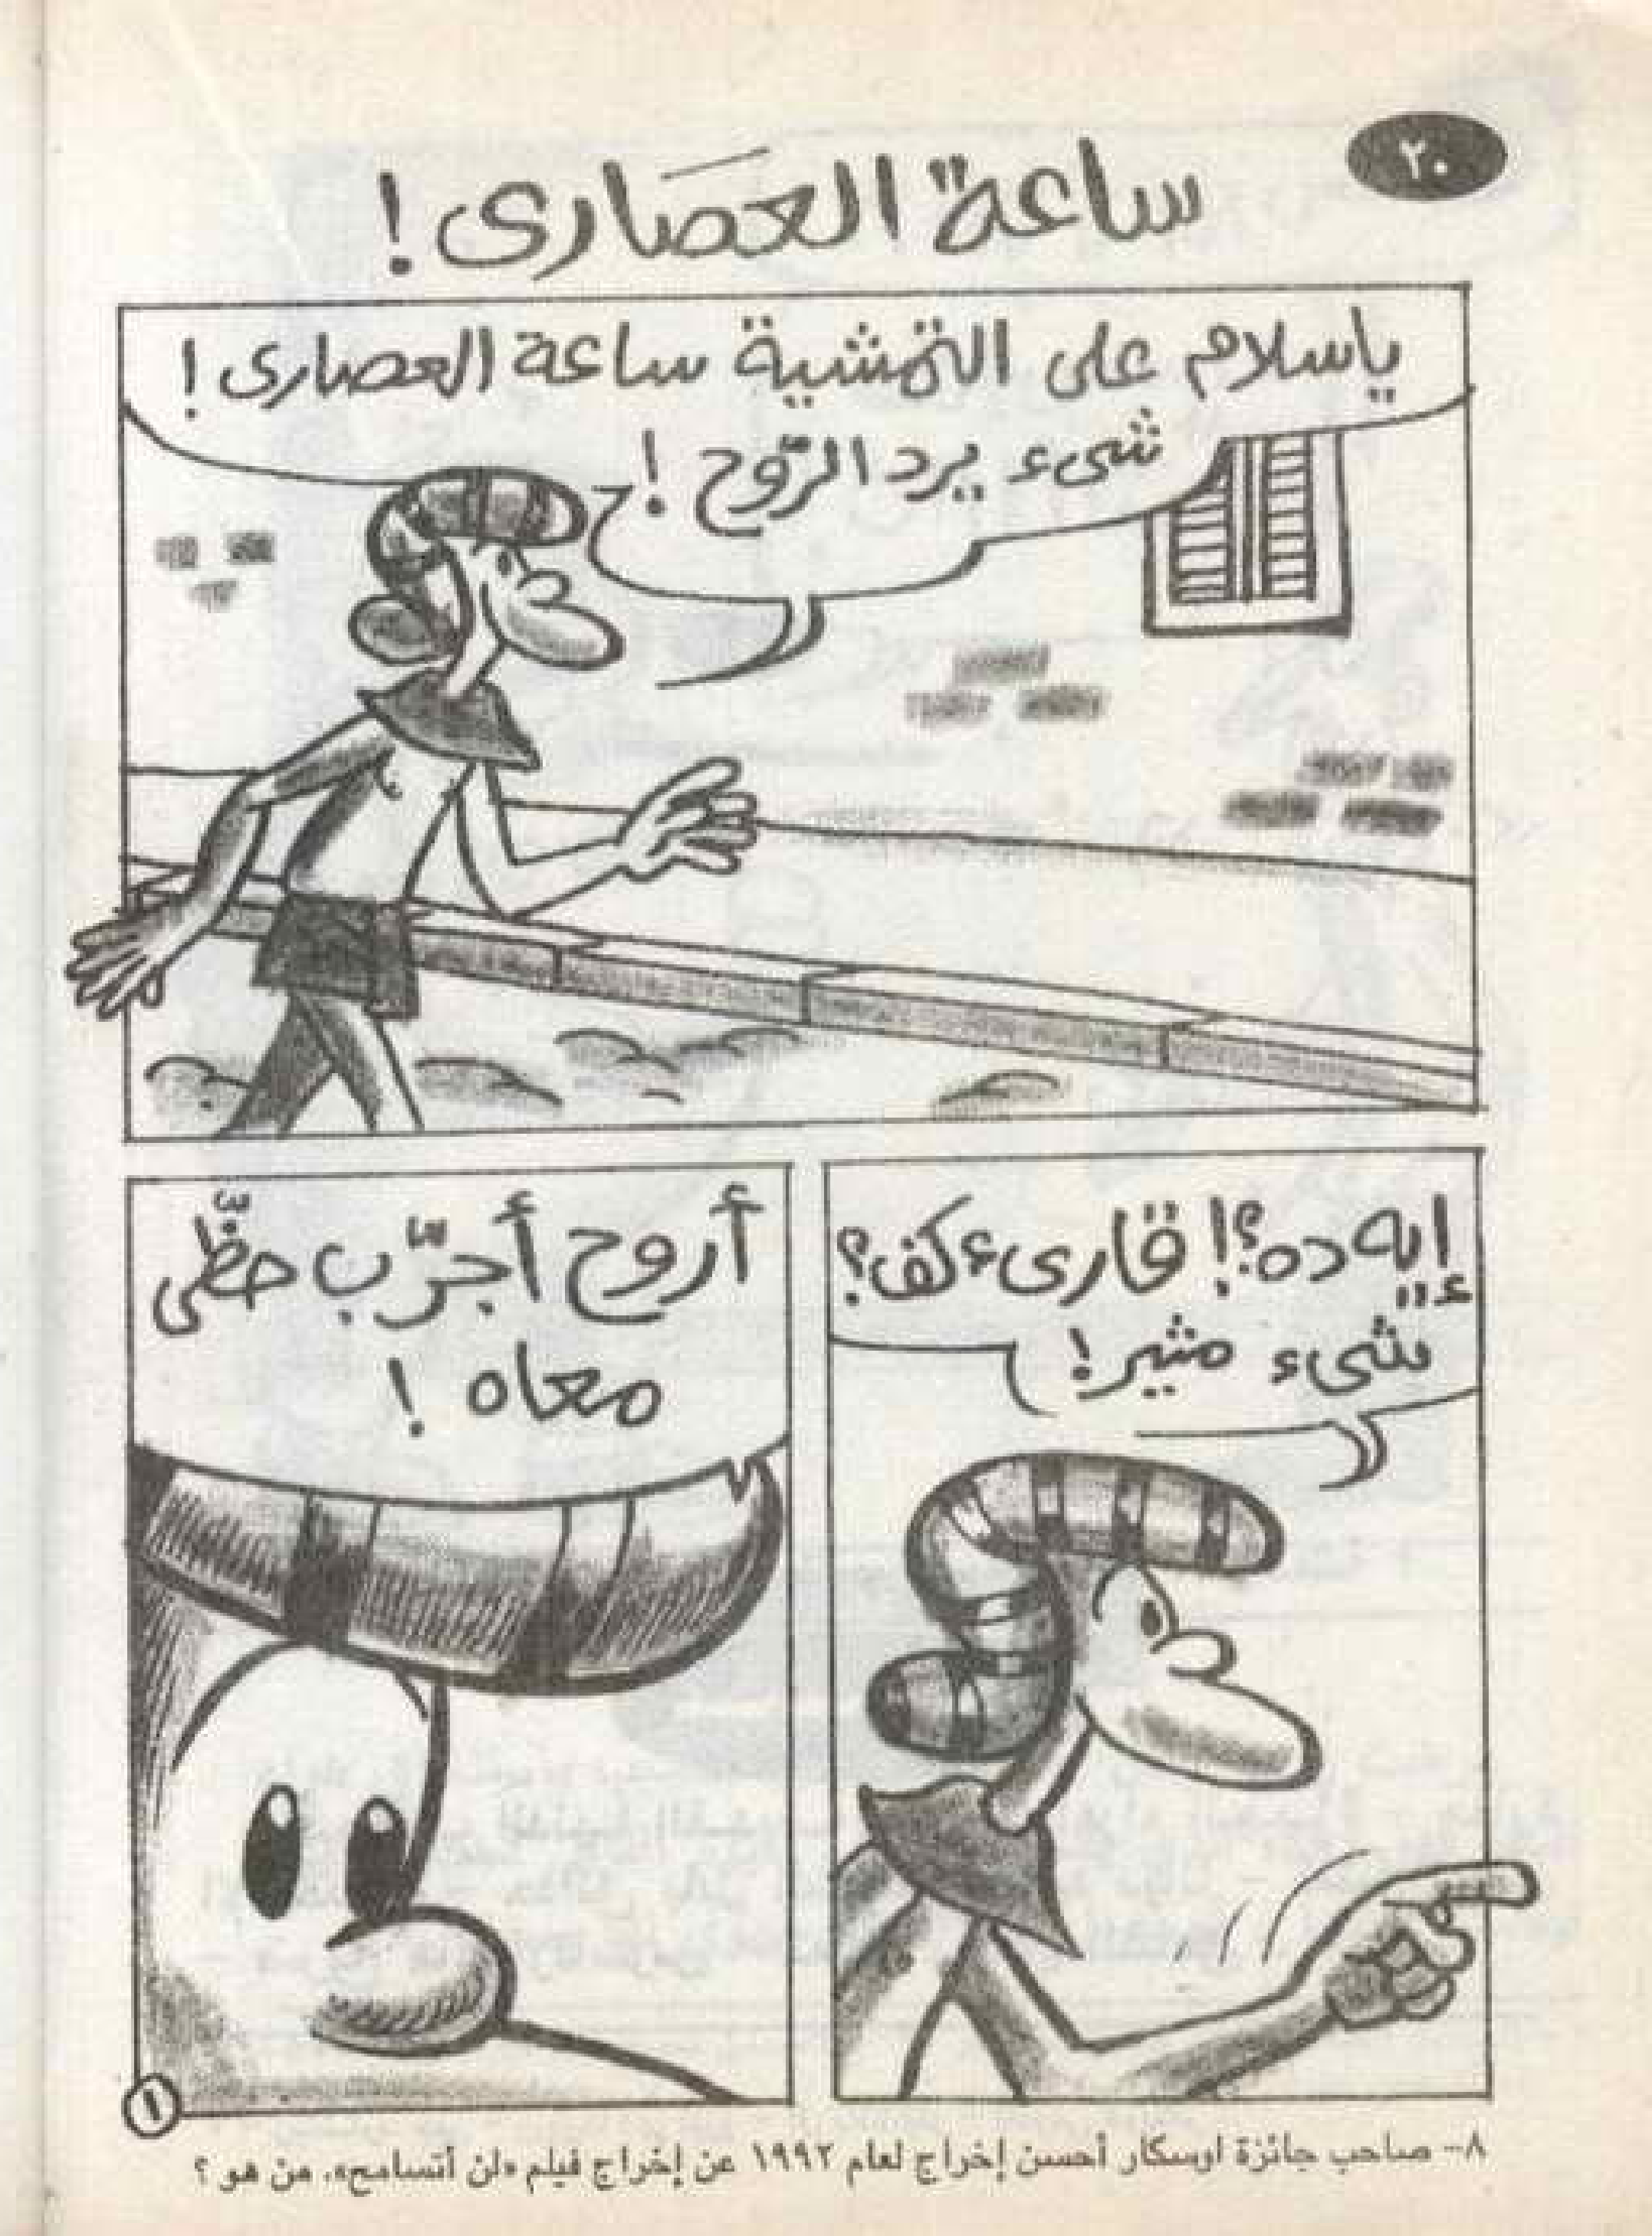 ٢٠
ساعة العصارى !
ياسلام على التمشية ساعة العصارى !
شىء يرد الرّوح !
إيه ده؟! قارىء كف؟
شىء مثير!
أروح أجرّب حظّى
معاه !
١
٨- صاحب جائزة اوسكار أحسن إخراج لعام ١٩٩٢ عن إخراج فيلم «لن أتسامح». من هو ؟